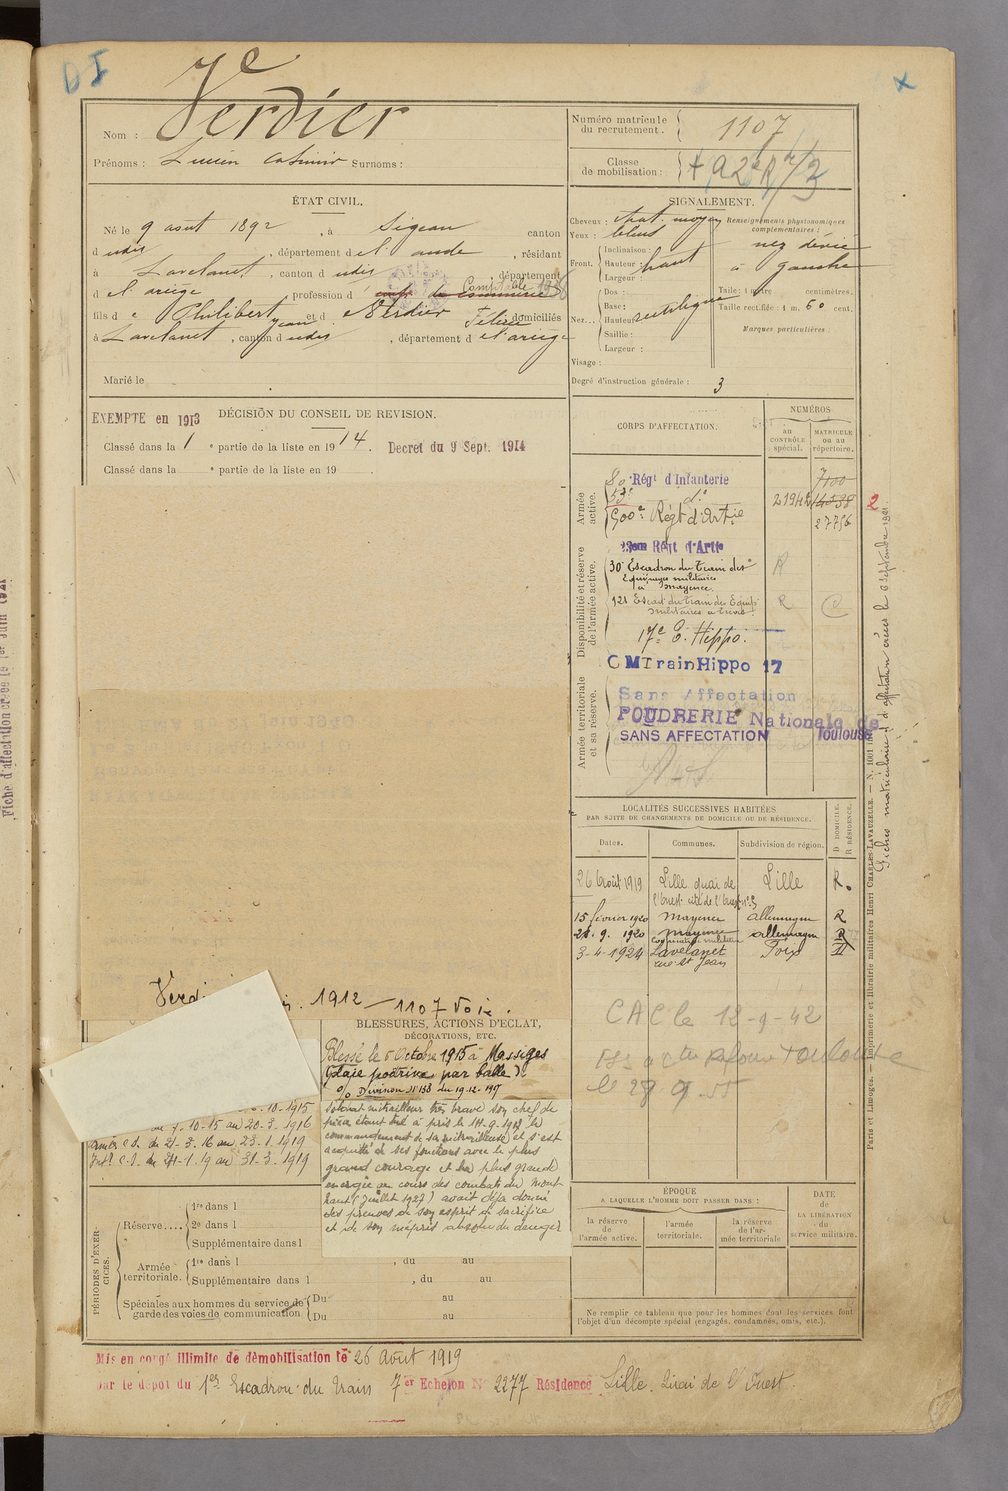 Verdier
Nom :
Prénoms : Lucien Casimir Surnoms :
Numéro matricule
du recrutement. 1107
Classe
de mobilisation :
ÉTAT CIVIL.
Né le 9 août 1892, à Sigean canton
d udis, département de l'aude, résidant
à Lavelanet, canton d udis, département
d el ariège, profession d Comptable
fils de Philibert Jean et d Verdier Félicie domiciliés
à Lavelanet, canton d udis, département d el'ariège
Marié le
SIGNALEMENT.
Cheveux : chat. moyen
Yeux : bleus
Front.
Inclinaison :
Hauteur : haut
Largeur :
Nez...
Dos :
Base :
Hauteur : rectiligne
Saillie :
Largeur :
Renseignements physionomiques
complémentaires :
nez dévié
à gauche
Taille : 1 mètre centimètres.
Taille rectifiée : 1 m. 60 cent.
Marques particulières :
Visage :
Degré d'instruction générale : 3
DÉCISION DU CONSEIL DE REVISION.
EXEMPTE en 1913
Classé dans la 1e partie de la liste en 1914. Decret du 9 Sept. 1914
Classé dans la e partie de la liste en 19 .
CORPS D'AFFECTATION.
NUMÉROS
au
CONTRÔLE
spécial.
MATRICULE
ou au
répertoire.
Armée
active.
80e Régt d'Infanterie 7100
53e do 21942 14538
500e Régt d'Artie 27756
2
Disponibilité et réserve
de l'armée active.
Régt d'Artie
30e Escadron du Train des
Equipages militaires
à Mayence R
121 Escad du train des Equip.
militaires R C
17e E. Hippo.
CMTrainHippo 17
Armée territoriale
et sa réserve.
Sans Affectation
POUDRERIE Nationale de
SANS AFFECTATION Toulouse
LOCALITÉS SUCCESSIVES HABITÉES
PAR SUITE DE CHANGEMENTS DE DOMICILE OU DE RÉSIDENCE.
Dates.
Communes.
Subdivision de région.
D DOMICILE.
R RÉSIDENCE.
26 Août 1919 Lille quai de Lille R.
l'Ouest cité de l'Ouest
15 février 1920 Mayence allemagne R
21. 9. 1920 Mayence allemagne R
3-4-1924 Lavelanet Foix
rue St Jean
CAC le 12-9-42
Verdier 1912 — 1107 Voie.
BLESSURES, ACTIONS D'ÉCLAT,
DÉCORATIONS, ETC.
Blessé le 5 Octobre 1915 à Massiges
(plaie poitrine par balle).
O/ Division No 153 du 19-12-1917
soldat mitrailleur très brave son chef de
pièce étant tué a pris le 14-9-1917 le
commandement de sa mitrailleuse et s'est
acquitté de ses fonctions avec le plus
grand courage et la plus grande
énergie au cours des combats du Mont
haut (juillet 1917) avait déjà donné
des preuves de son esprit de sacrifice
et de son mépris absolu du danger
10-1915
7-10-15 au 20-3-1916
du 21-3-16 au 23-1-1919
Intr C.S. du 24-1-19 au 31-3-1919
PÉRIODES D'EXERCICES.
Réserve....
1re dans l
2e dans l
Supplémentaire dans l
Armée
territoriale.
1re dans l , du au
Supplémentaire dans l , du au
Spéciales aux hommes du service de
garde des voies de communication
Du au
Du au
ÉPOQUE
A LAQUELLE L'HOMME DOIT PASSER DANS :
la réserve
de
l'armée active.
l'armée
territoriale.
la réserve
de l'ar-
mée territoriale
DATE
de
LA LIBÉRATION
du
service militaire.
Ne remplir ce tableau que pour les hommes dont les services font
l'objet d'un décompte spécial (engagés, condamnés, omis, etc.).
Mis en congé illimité de démobilisation le 26 Août 1919
par le dépôt du 1er Escadron du Train 7er Echelon No 2277 Résidence Lille. Quai de l'Ouest.
Paris et Limoges. — Imprimerie et librairie militaires Henri CHARLES-LAVAUZELLE. — N. 1001